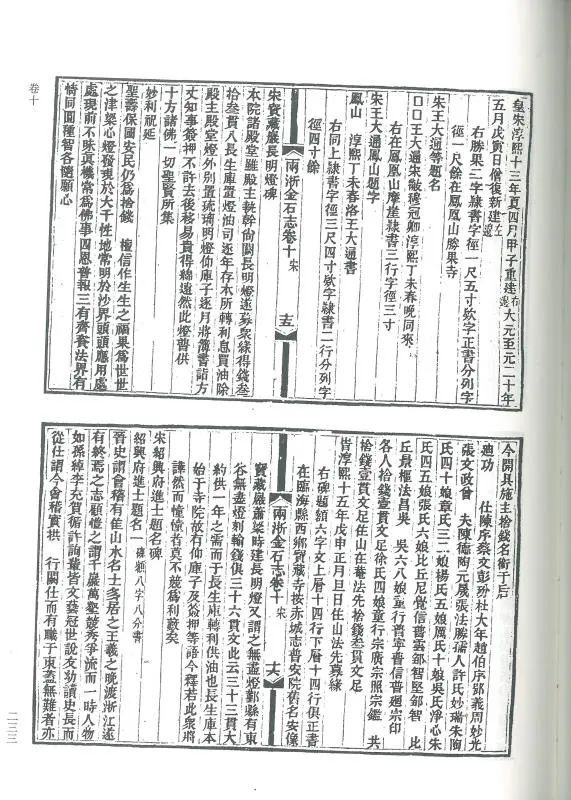 皇宋淳熙十三年夏四月甲子重建右邊大元至元二十年
五月戊寅日僧復新建左邊
右勝果二字隸書字徑一尺五寸欵字正書分列字
徑一尺餘在鳳凰山勝果寺
宋王大通等題名
□□王大通宋敞穆冠卿淳熙丁未春晚同來
右在鳳凰山摩崖隸書三行字徑三寸
宋王大通鳳山題字
鳳山 淳熙丁未春洛王大通書
右同上隸書字徑三尺四寸欵字隸書二行分列字
徑四寸餘
兩浙金石志卷十 宋 十五
宋寶藏巖長明燈碑
本院諸殿堂雖殿主執幹尚闕長明燈遂募衆緣得錢叁
拾叁貫入長生庫置燈油司逐年存本所轉利息買油除
殿主殿堂燈外別置琉璃明燈仰庫子逐月將簿書詣方
丈知事簽押不許去後移易貴得綿遠然此燈普供
十方諸佛一切聖賢所集
妙利祝延
聖壽保國安民仍爲捨錢 檀信作生生之福果爲世世
之津梁心燈發現於大千性地常明於沙界頭頭應用處
處現前不昧眞機常爲佛事四恩普報三有齊資法界有
情同圓種智各隨願心
卷十
今開具施主捨錢名銜于后
廸功 仕陳序蔡文彭玢杜大年趙伯序鄧義周妙光
張文政曾 夫陳德陶元晟張法勝孺人許氏妙瑞朱陶
氏四十娘章氏三二娘楊氏五娘厲氏十娘吳氏淨心朱
氏四五娘張氏六娘比丘尼覺信普雲鄒智堅鄒智 比
丘景樞法昌吳 吳六八娘童行普寧普信普廻宗印
各人拾錢壹貫文足徐氏四娘童行宗廣宗照宗鑑 共
捨錢壹貫文足住山在菴法先捨錢叁貫文足
旹淳熙十五年戊申正月旦日住山法先募緣
右碑題額六字文上層十四行下層十四行俱正書
在臨海縣西鄉寶藏寺按赤城志普安院舊名安像
兩浙金石志卷十 宋 十六
寶藏巖蕭梁時建長明燈又謂之無盡燈鄞縣有東
谷無盡燈刻輸錢俱三十六貫文此云三十三貫大
約供一年之需而于長生庫轉利供油也長生庫本
始于寺院故有仰庫子及簽押等語今釋若此衆將
譁然而憧憧者莫不競爲利藪矣
宋紹興府進士題名碑
紹興府進士題名一 篆額八字八分書
晉史謂會稽有佳山水名士多居之王羲之晚渡浙江遂
有終焉之志顧愷之謂千巖萬壑競秀爭流而一時人物
如孫綽李充賀循許詢輩皆文藝冠世說支幼讀史長而
從仕謂今會稽實拱 行闕仕而有職于東盍無難者亦
二三三